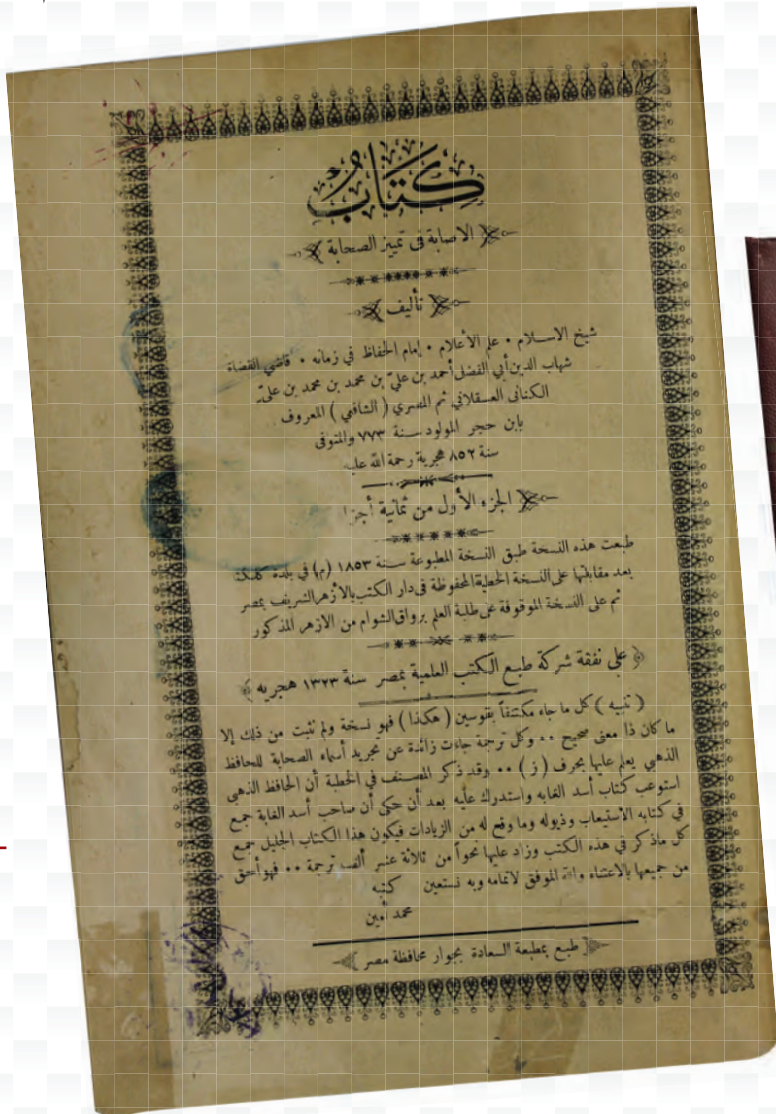 كتاب
الاصابة في تمييز الصحابة
تأليف
شيخ الاسلام • علم الأعلام • إمام الحفاظ في زمانه • قاضي القضاة
شهاب الدين أبي الفضل أحمد بن عليّ بن محمد بن محمد بن عليّ
الكنانى العسقلاني ثم المصري ( الشافعي ) المعروف
بابن حجر المولود سنة ٧٧٣ والمتوفى
سنة ٨٥٢ هجرية رحمة الله عليه
الجزء الأول من ثمانية أجزا
طبعت هذه النسخة طبق النسخة المطبوعة سنة ١٨٥٣ (م) في بلدة كلكتة
بعد مقابلتها على النسخة الخطية المحفوظة في دار الكتب بالأزهر الشريف بمصر
ثم على النسخة الموقوفة على طلبة العلم برواق الشوام من الازهر المذكور
﴿ على نفقة شركة طبع الكتب العلمية بمصر سنة ١٣٢٣ هجريه ﴾
( تنبيه ) كل ما جاء مكتنفاً بقوسين ( هكذا ) فهو نسخة ولم نثبت من ذلك إلا
ما كان ذا معنى صحيح •• وكل ترجمة جاءت زائدة عن تجريد أسماء الصحابة للحافظ
الذهبي يعلم عليها بحرف ( ز ) •• وقد ذكر المصنف في الخطبة أن الحافظ الذهبي
استوعب كتاب أسد الغابه واستدرك عليه بعد أن حكى أن صاحب أسد الغابة جمع
في كتابه الاستيعاب وذيوله وما وقع له من الزيادات فيكون هذا الكتاب الجليل جمع
كل ماذكر في هذه الكتب وزاد عليها نحواً من ثلاثة عشر ألف ترجمة •• فهو أحق
من جميعها بالاعتناء والله الموفق لاتمامه وبه نستعين كتبه
محمد أمين
طبع بمطبعة السعادة بجوار محافظة مصر